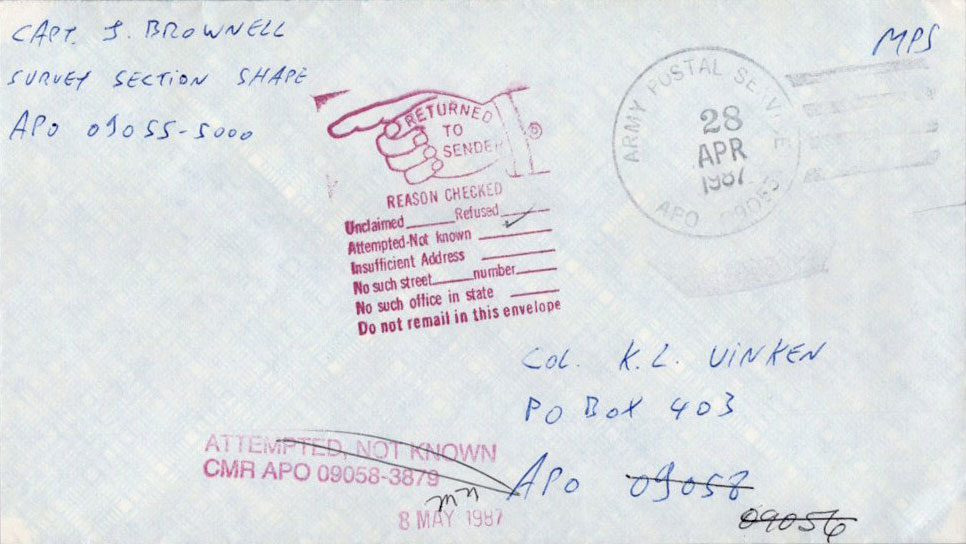 CAPT. J. BROWNELL
SURVEY SECTION SHAPE
APO 09055-5000
MPS
ARMY POSTAL SERVICE
28
APR
1987
APO 09055
RETURNED
TO
SENDER
REASON CHECKED
Unclaimed Refused ✓
Attempted-Not known
Insufficient Address
No such street number
No such office in state
Do not remail in this envelope
COL. K.L. VINKEN
PO BOX 403
APO 09058
09056
ATTEMPTED, NOT KNOWN
CMR APO 09058-3879
8 MAY 1987